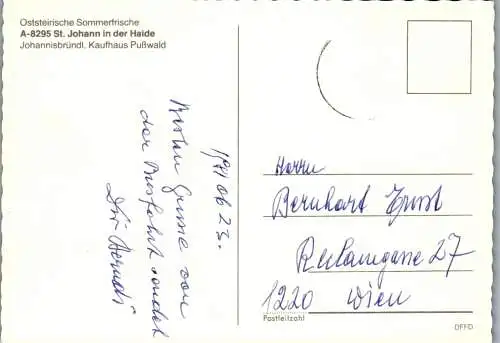 Oststeirische Sommerfrische
A-8295 St. Johann in der Haide
Johannisbründl, Kaufhaus Pußwald
1971 06 23.
Grüsse von
der Ausfahrt sendet
Herrn
Bernhart Ernst
27
1220 Wien
Postleitzahl
DFFD